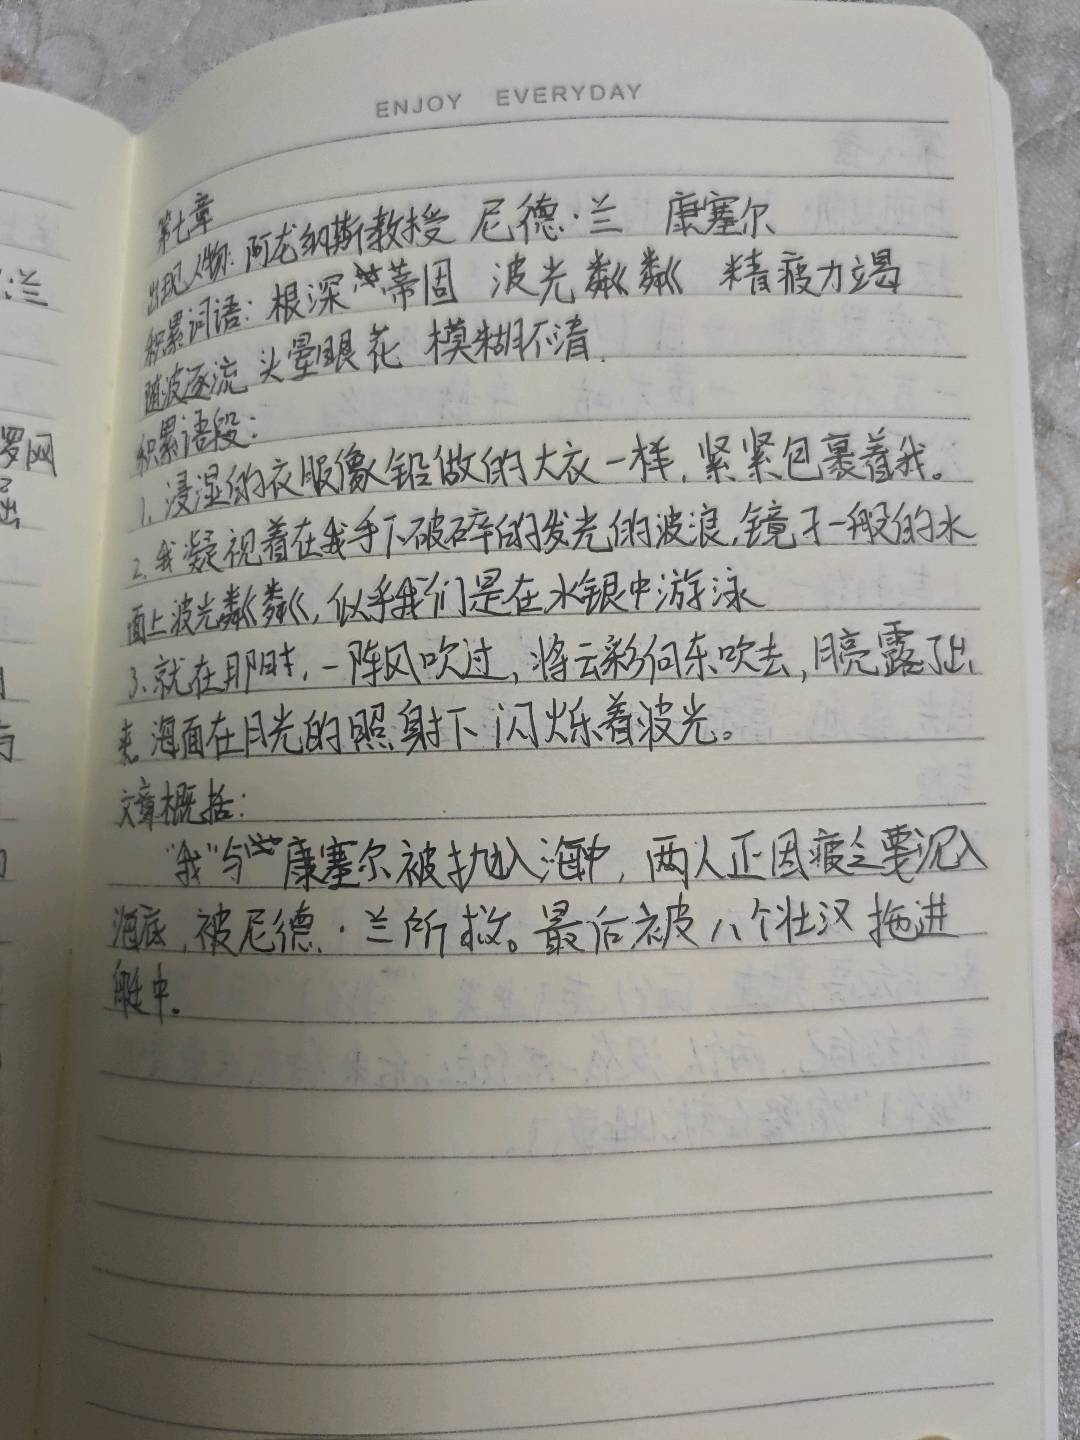 ENJOY EVERYDAY
第七章
出现人物：阿龙纳斯教授 尼德·兰 康塞尔
积累词语：根深蒂固 波光粼粼 精疲力竭
随波逐流 头晕眼花 模糊不清.
积累语段：
1、浸湿的衣服像铅做的大衣一样，紧紧包裹着我。
2、我凝视着在我手下破碎的发光的波浪，镜子一般的水
面上波光粼粼，似乎我们是在水银中游泳
3、就在那时，一阵风吹过，将云彩向东吹去，月亮露了出
来。海面在月光的照射下闪烁着波光。
文章概括：
“我”与康塞尔被抛入海中，两人正因疲乏要沉入
海底，被尼德·兰所救。最后被八个壮汉拖进
艇中。
:兰
罗网